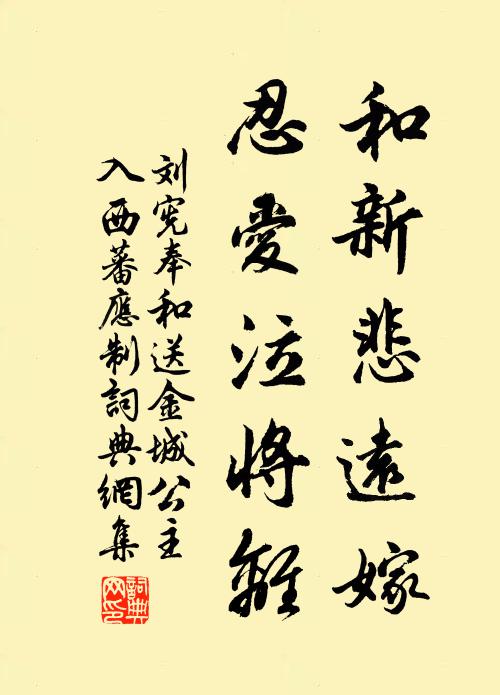 和新悲遠嫁
忍愛泣將離
刘宪奉和送金城公主
入西蕃應制詞典網集
詞典网印